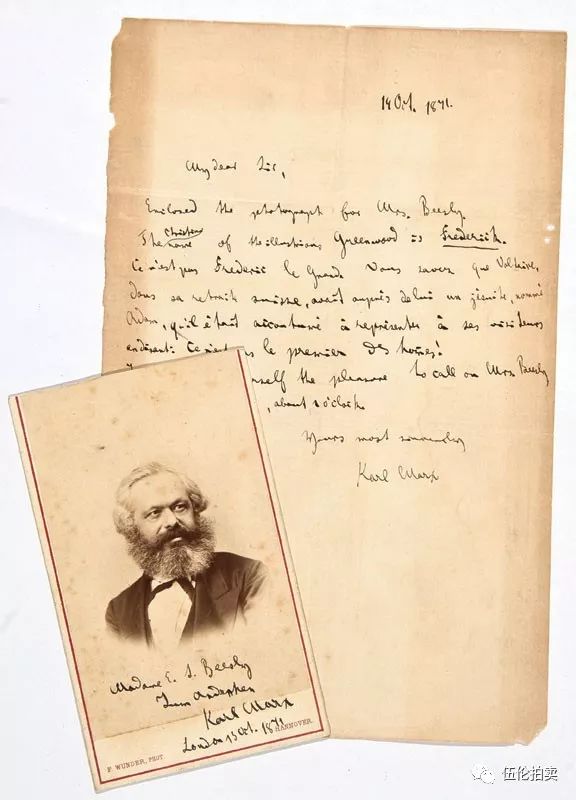 14 Oct. 1871.
My dear Sir,
Enclosed the photograph for Mrs. Beesly.
The Christian name of the illustrious Greenwood is Frederick.
Ce n'est pas Frederic le Grand. Vous savez que Voltaire,
dans sa retraite suisse, avait auprès de lui un jésuite, nommé
Adam, qu'il était accoutumé à représenter à ses visiteurs
en disant: Ce n'est pas le premier des hommes!
self the pleasure to call on Mrs Beesly
, about o'clock
Yours most sincerely
Karl Marx
Madame E. S. Beesly
Zum Andenken
Karl Marx
London 13 Oct. 1871
F. WUNDER, PHOT.
HANNOVER.
伍伦拍卖